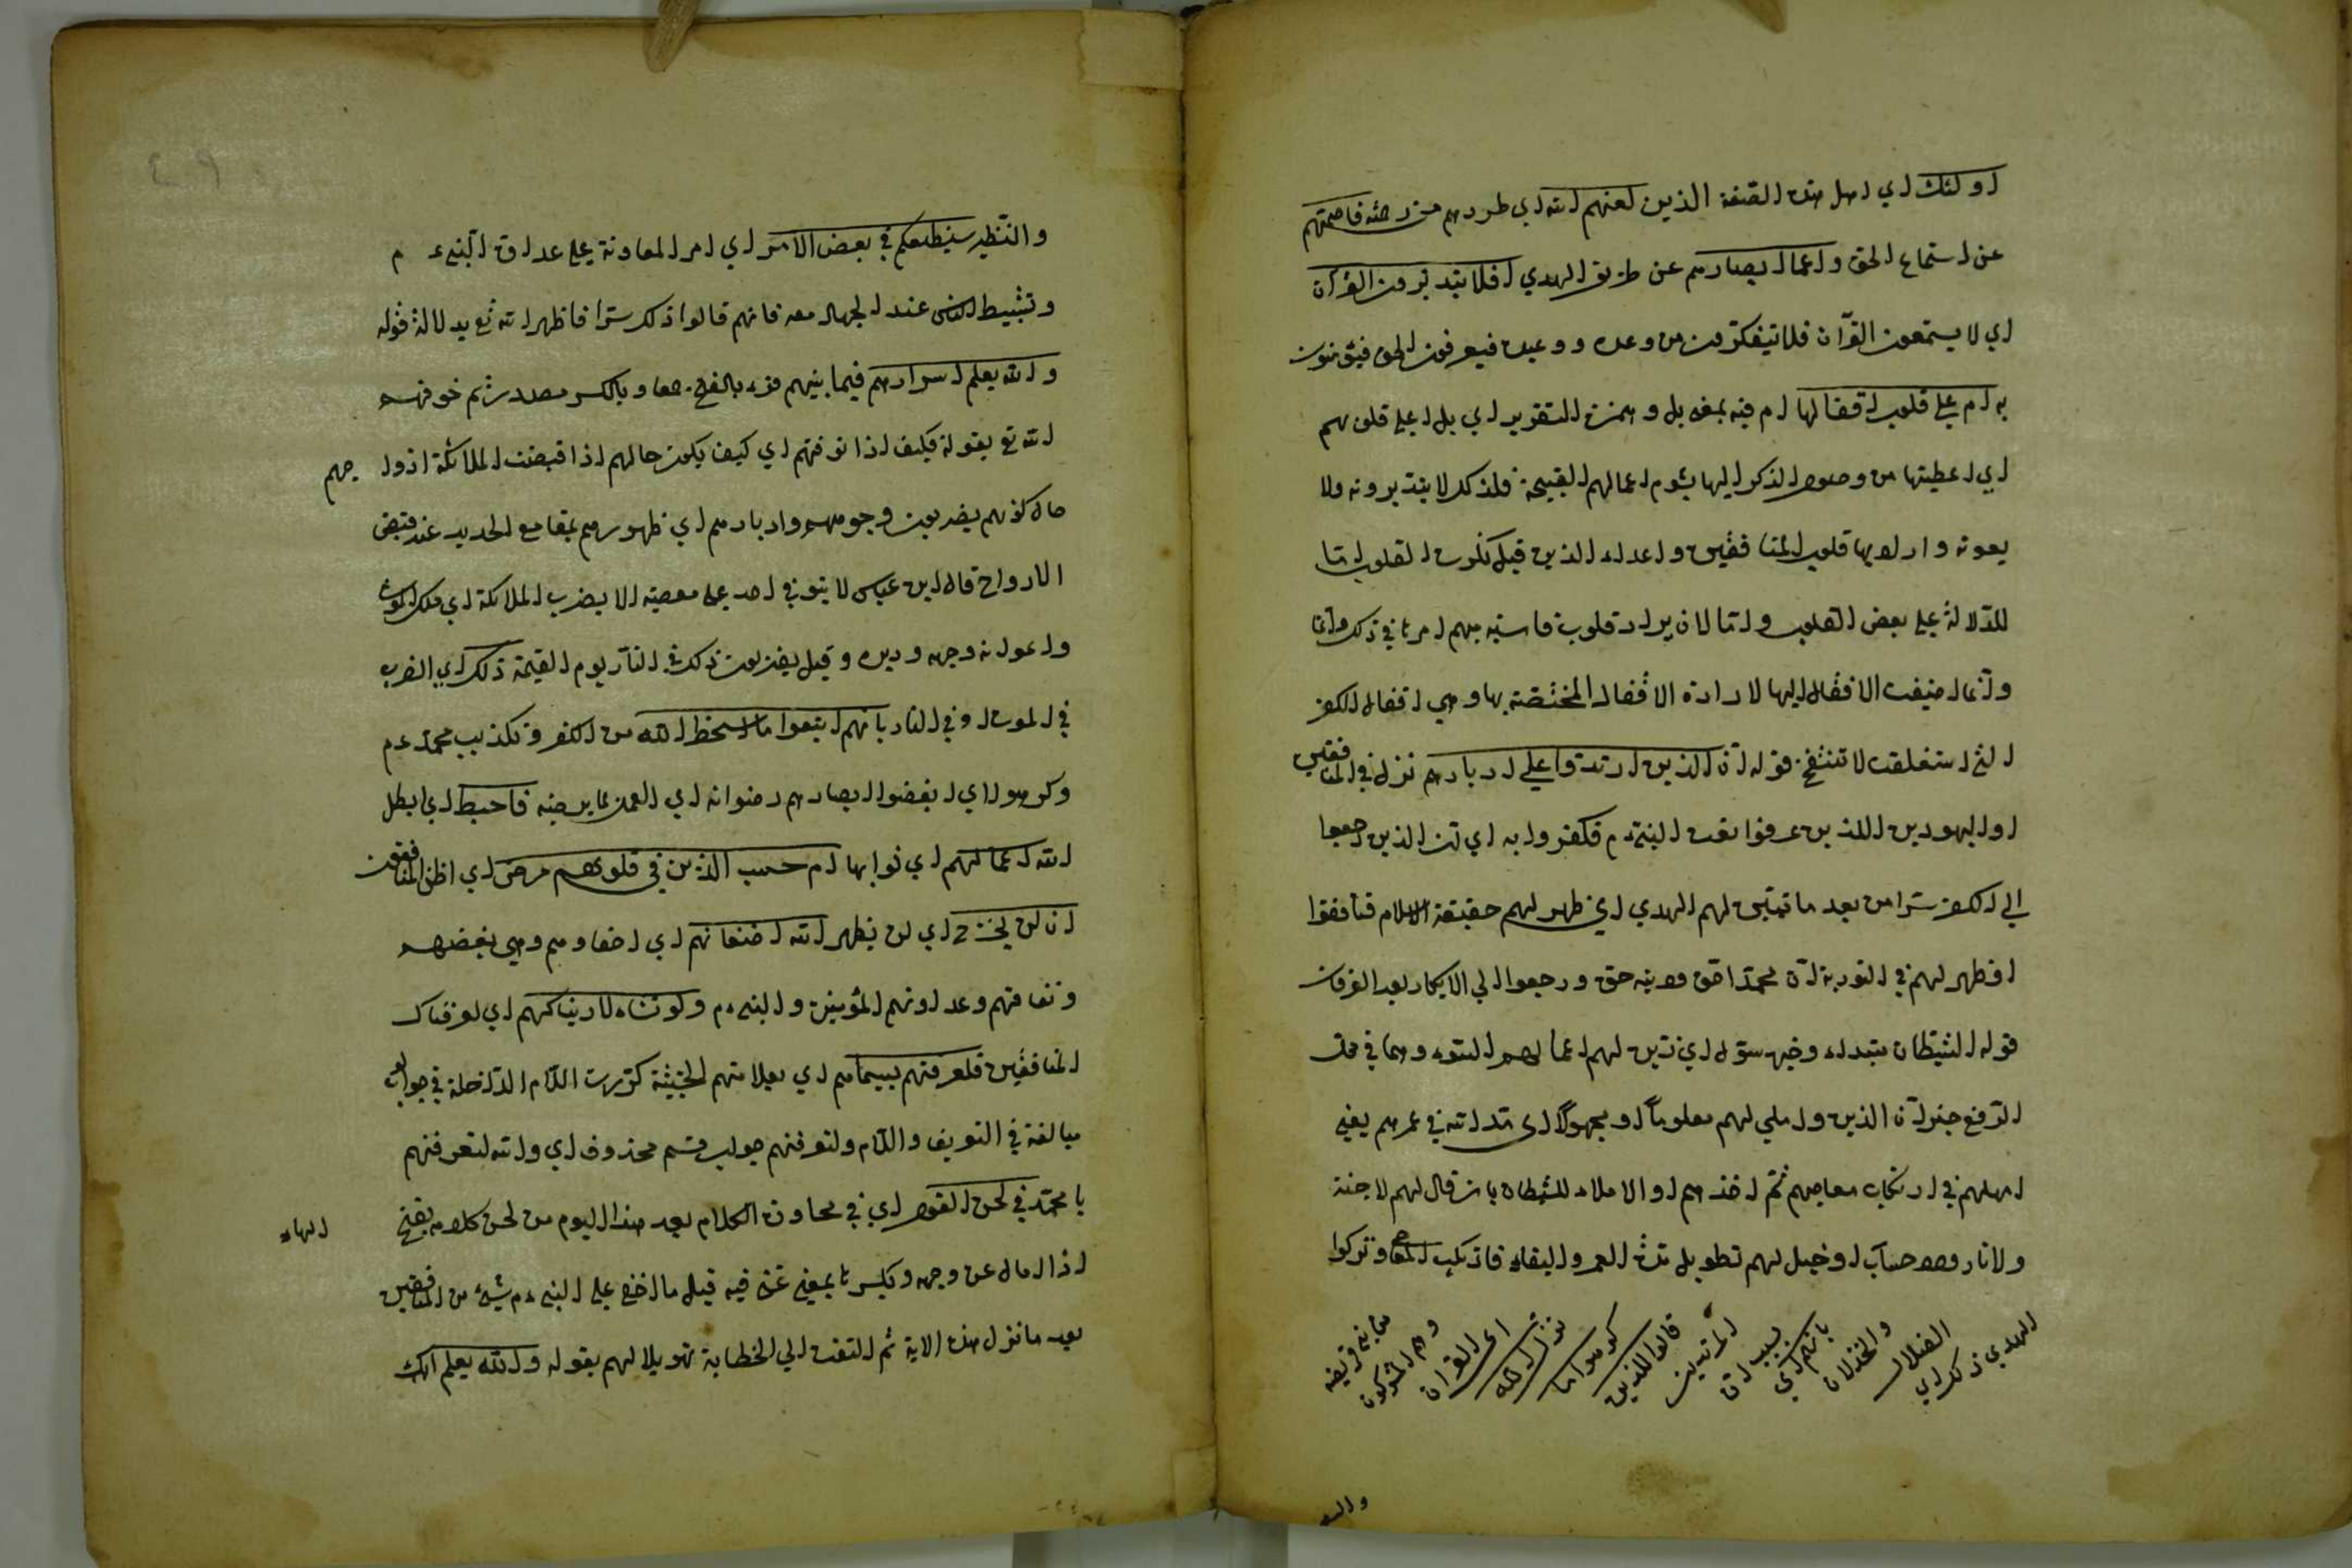 اولئك اي اهل هذه الصفة الذين لعنهم الله اي طردهم من رحمته فاصمهم
عن استماع الحق واعمى ابصارهم عن طريق الهدي افلا يتدبرون القرآن
اي لا يستمعون القرآن فلا يتفكرون من وعده ووعيده فيعرفون الحق فيؤمنون
به ام علي قلوب اقفالها ام فيه بمعنى بل وهمزة التقرير اي بل اعلي قلوبهم
اي اعطيتها من وصول الذكر اليها بشوم اعمالهم القبيحة فلذلك لا يتدبرونه ولا
يعونه واراد بها قلوب المنافقين واعداء الذين قبل نكرت القلوب اما
للدلالة علي بعض القلوب واما لان يراد قلوب قاسية مبهم امرها في ذلك وانما
وانما اضيفت الاقفال اليها لارادة الاقفال المختصة بها وهي اقفال الكفر
التي استغلقت لا تنفتح قوله ان الذين ارتدوا علي ادبارهم نزل في المنافقين
او اليهودين اللذين عرفوا نعت النبي ءم فكفروا به اي ان الذين رجعوا
الي الكفر سرا من بعد ما تبين لهم الهدي اي ظهر لهم حقيقة الاسلام فنافقوا
او ظهر لهم في التورية ان محمدا حق ودينه حق ورجعوا الي الانكار بعد العرفان
قوله الشيطان مبتداء وخبره سول اي زين لهم اعمالهم السوء وهما في محل
الرفع خبر ان الذين واملي لهم معلوما او مجهولا اي مد الله في عمرهم يعني
امهلهم في ارتكاب معاصيهم ثم اخذهم او الاملاء للشيطان بان قال لهم لا جنة
ولا نار ولا حساب او خيل لهم تطويل مدة العمر والبقاء فارتكب المعاصي وتركوا
الهدي ذلك اي
الضلال
والخذلان
بانهم اي
بسبب ان
المرتدين
قالوا للذين
كرهوا ما
نزل الله
اي القران
وهم المشركون
من بني قريضه
والنضـ
والنظير سنطيعكم في بعض الامر اي امر المعاونة علي عداوة النبي ء م
وتثبيط الناس عند الجهاد معه فانهم قالوا ذلك سرا فاظهر الله تع بدلالة قوله
والله يعلم اسرارهم فيما بينهم قرء بالفتح جمعا وبالكسر مصدر ثم خوفهم
الله تع بقوله فكيف اذا توفتهم اي كيف يكون حالهم اذا قبضت الملائكة ارواحهم
حال كونهم يضربون وجوههم وادبارهم اي ظهورهم بمقامع الحديد عند قبض
الارواح قال ابن عباس لا يتوفي احد علي معصية الا يضرب الملائكة اي ملك الموت
واعوانه وجهه ودبره وقيل يضربون ذلك في النار يوم القيمة ذلك اي الضرب
في الموت او في النار بانهم اتبعوا ما اسخط الله من الكفر وتكذيب محمد ءم
وكرهوا اي ابغضوا ابصارهم رضوانه اي العمل بما يرضيه فاحبط اي ابطل
الله اعمالهم اي ثوابها ام حسب الذين في قلوبهم مرض اي اظن المنافقون
ان لن يخرج اي لن يظهر الله اضغانهم اي احقادهم وهي بغضهم
ونفاقهم وعداوتهم المؤمنين والنبي ءم ولو نشاء لاريناكهم اي لعرفناك
المنافقين فلعرفتهم بسيماهم اي بعلامتهم الخبيثة كررت اللام الداخلة في جواب لو
مبالغة في التعريف واللام ولتعرفنهم جواب قسم محذوف اي والله لتعرفنهم
يا محمد في لحن القول اي في محاورة الكلام بعد هذا اليوم من لحن كلامه بفتح
الهاء
اذا امال عن وجهه وبكسرها بمعنى غنى فيه قيل ما خفي علي النبي ءم شيء من المنافقين
بعد ما نزل هذه الاية ثم التفت الي الخطابة تهويلا لهم بقوله والله يعلم